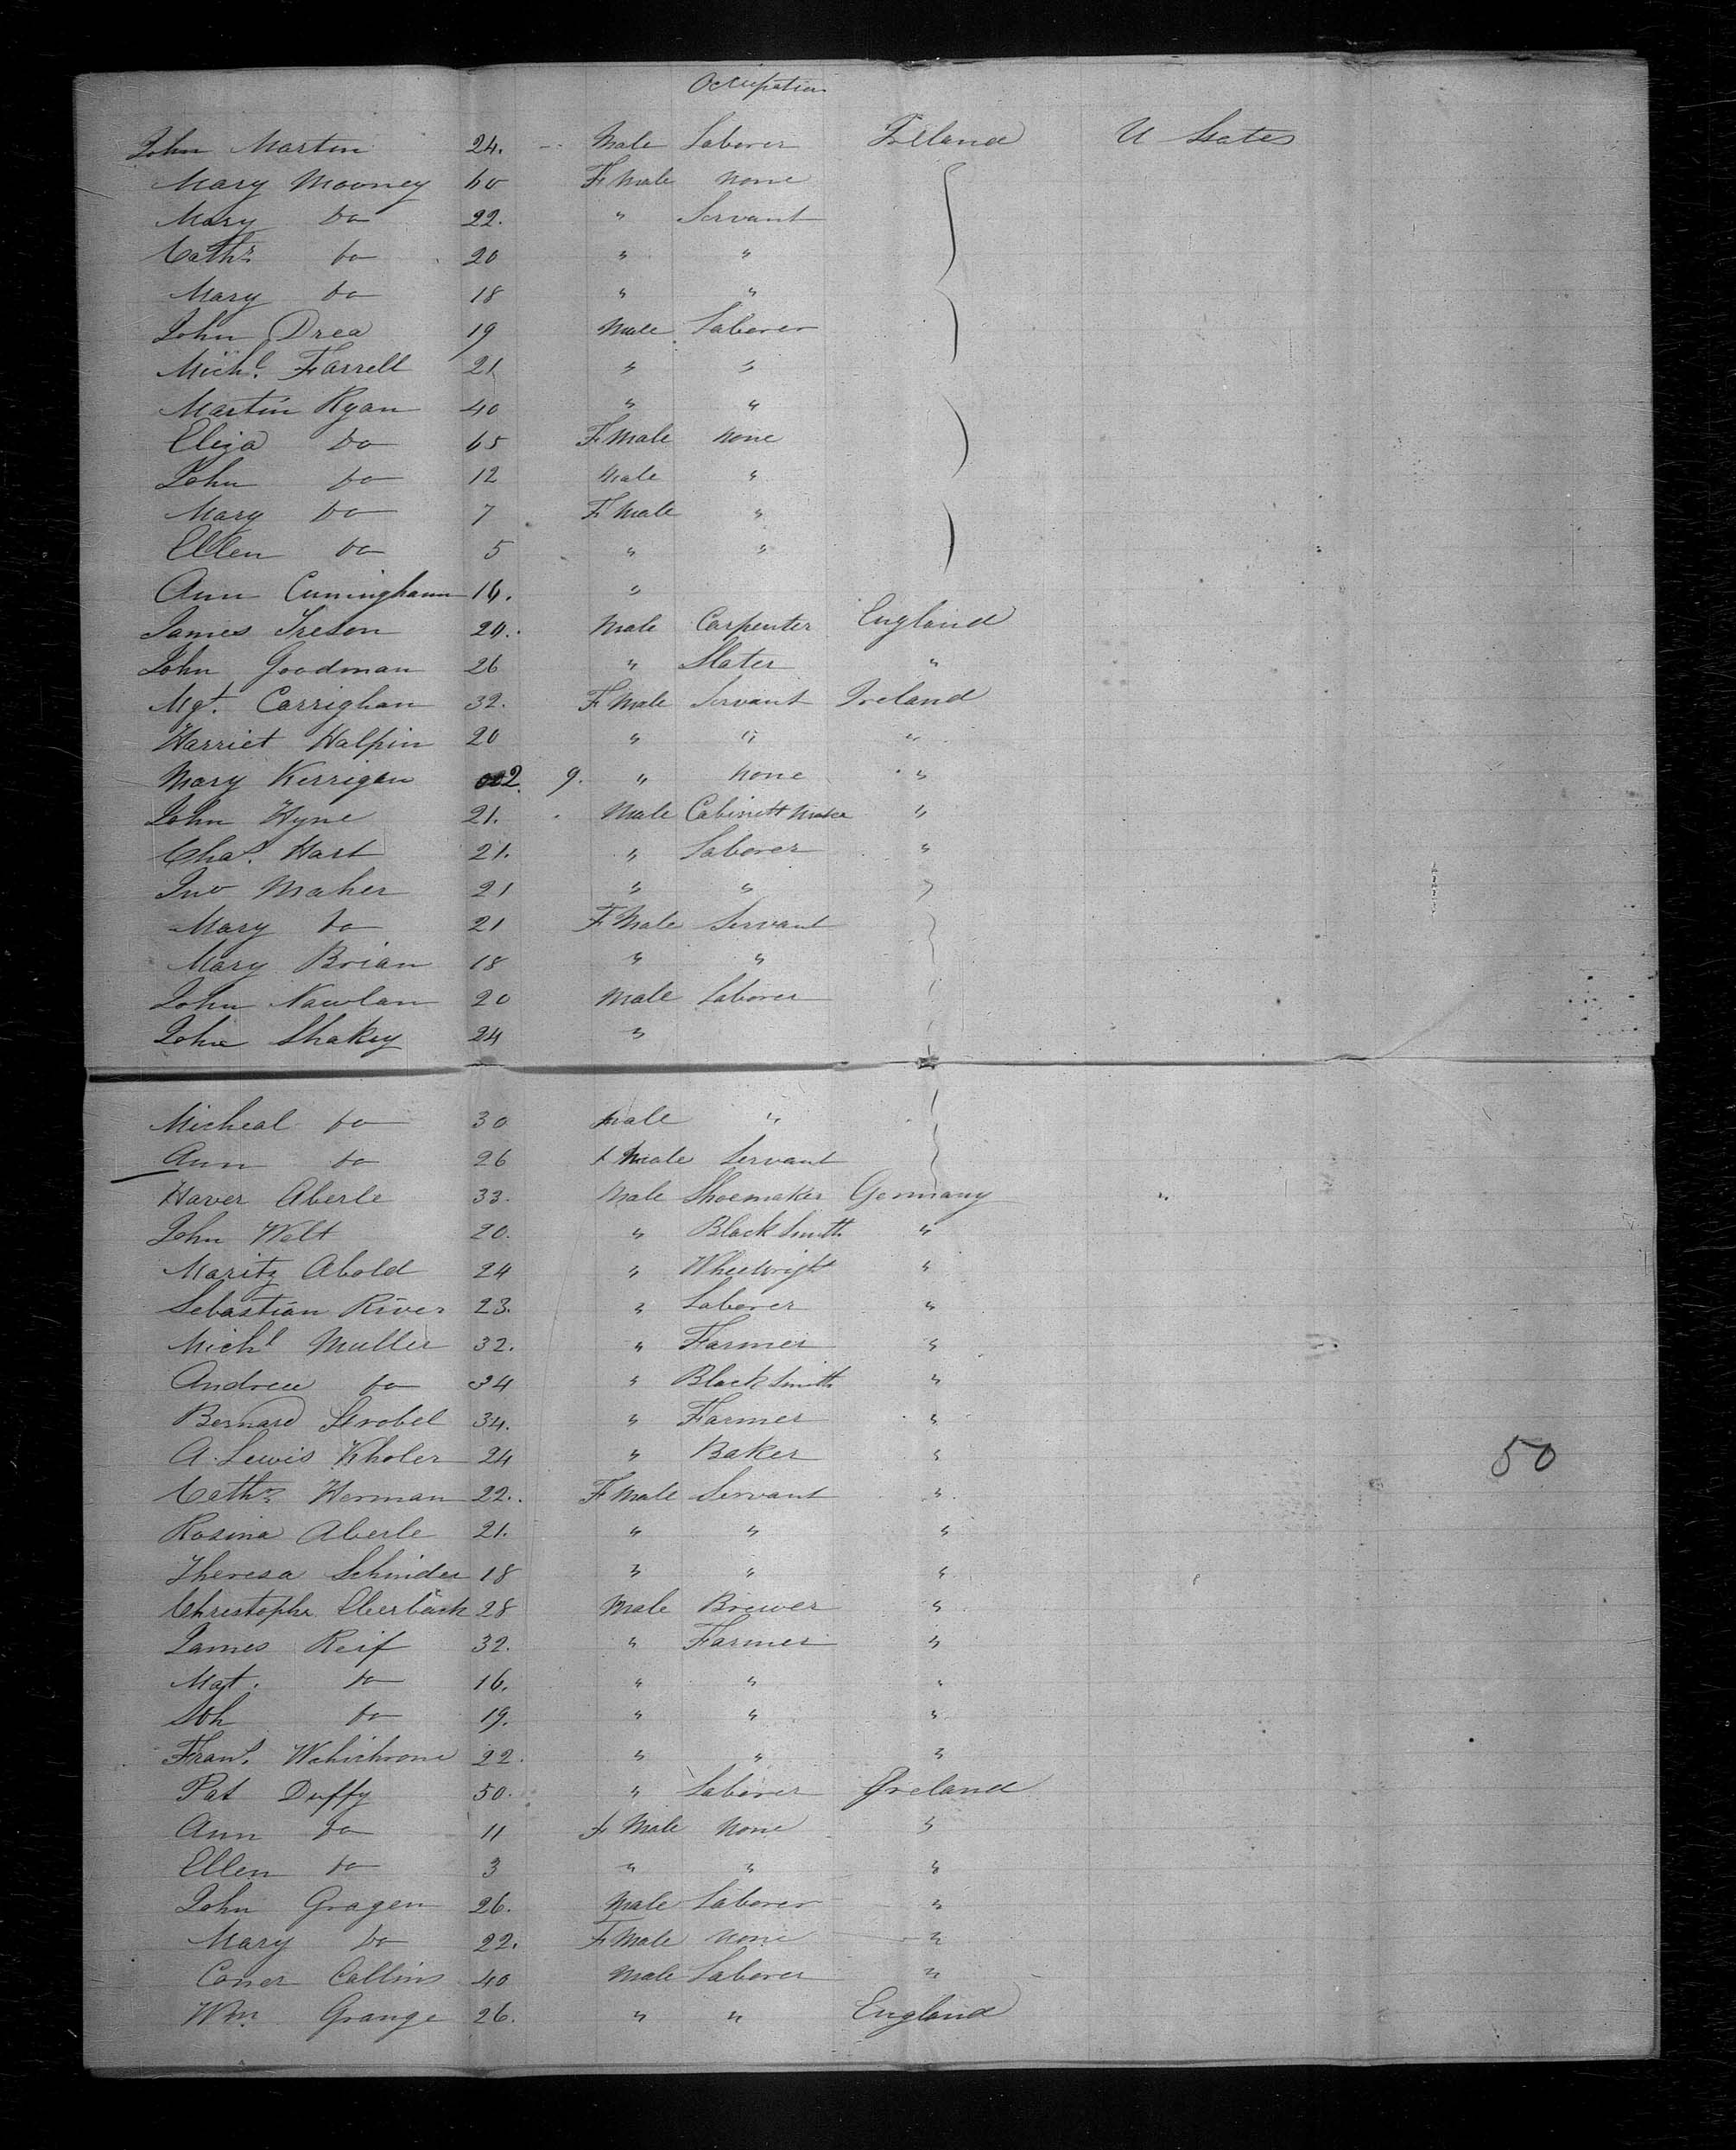 Occupation
John Martin 24. Male Laborer Ireland U States
Mary Mooney 60 F Male None
Mary do 22. " Servant
Cathe do 20 " "
Mary do 18 " "
John Drea 19 Male Laborer
Michl. Farrell 21 " "
Martin Ryan 40 " "
Eliza do 65 F Male None
John do 12 Male "
Mary do 7 F Male "
Ellen do 5 " "
Ann Cuningham 16. "
James Ireson 24. Male Carpenter England
John Goodman 26 " Slater "
Mgt. Carrighan 32. F Male Servant Ireland
Harriet Halpin 20 " " "
Mary Kerrigan 2. 9. " None "
John Hyne 21. Male Cabinett Maker "
Chas. Hart 21. " Laborer "
Jno Maher 21 " " "
Mary do 21 F Male Servant
Mary Brian 18 " "
John Nawlan 20 Male Laborer
John Shakey 24 "
Micheal do 30 Male "
Ann do 26 F Male Servant
Haver Aberle 33. Male Shoemaker Germany "
John Welt 20. " Black Smith "
Maritz Abold 24 " Wheelwright "
Sebastian River 23. " Laborer "
Michl Muller 32. " Farmer "
Andrew do 34 " Black Smith "
Bernard Strobel 34. " Farmer "
A. Lewis Kholer 24 " Baker "
50
Cathe Herman 22. F Male Servant "
Rosina Aberle 21. " " "
Theresa Schnider 18 " " "
Christophe Eberback 28 Male Brewer "
James Reif 32. " Farmer "
Mat. do 16. " " "
Joh do 19. " " "
Frans. 22. " " "
Pat Duffy 50. " Laborer Ireland
Ann do 11 F Male None "
Ellen do 3 " " "
John Gragen 26. Male Laborer "
Mary do 22. F Male None "
Coner Collins 40 Male Laborer "
Wm. Grange 26. " " England